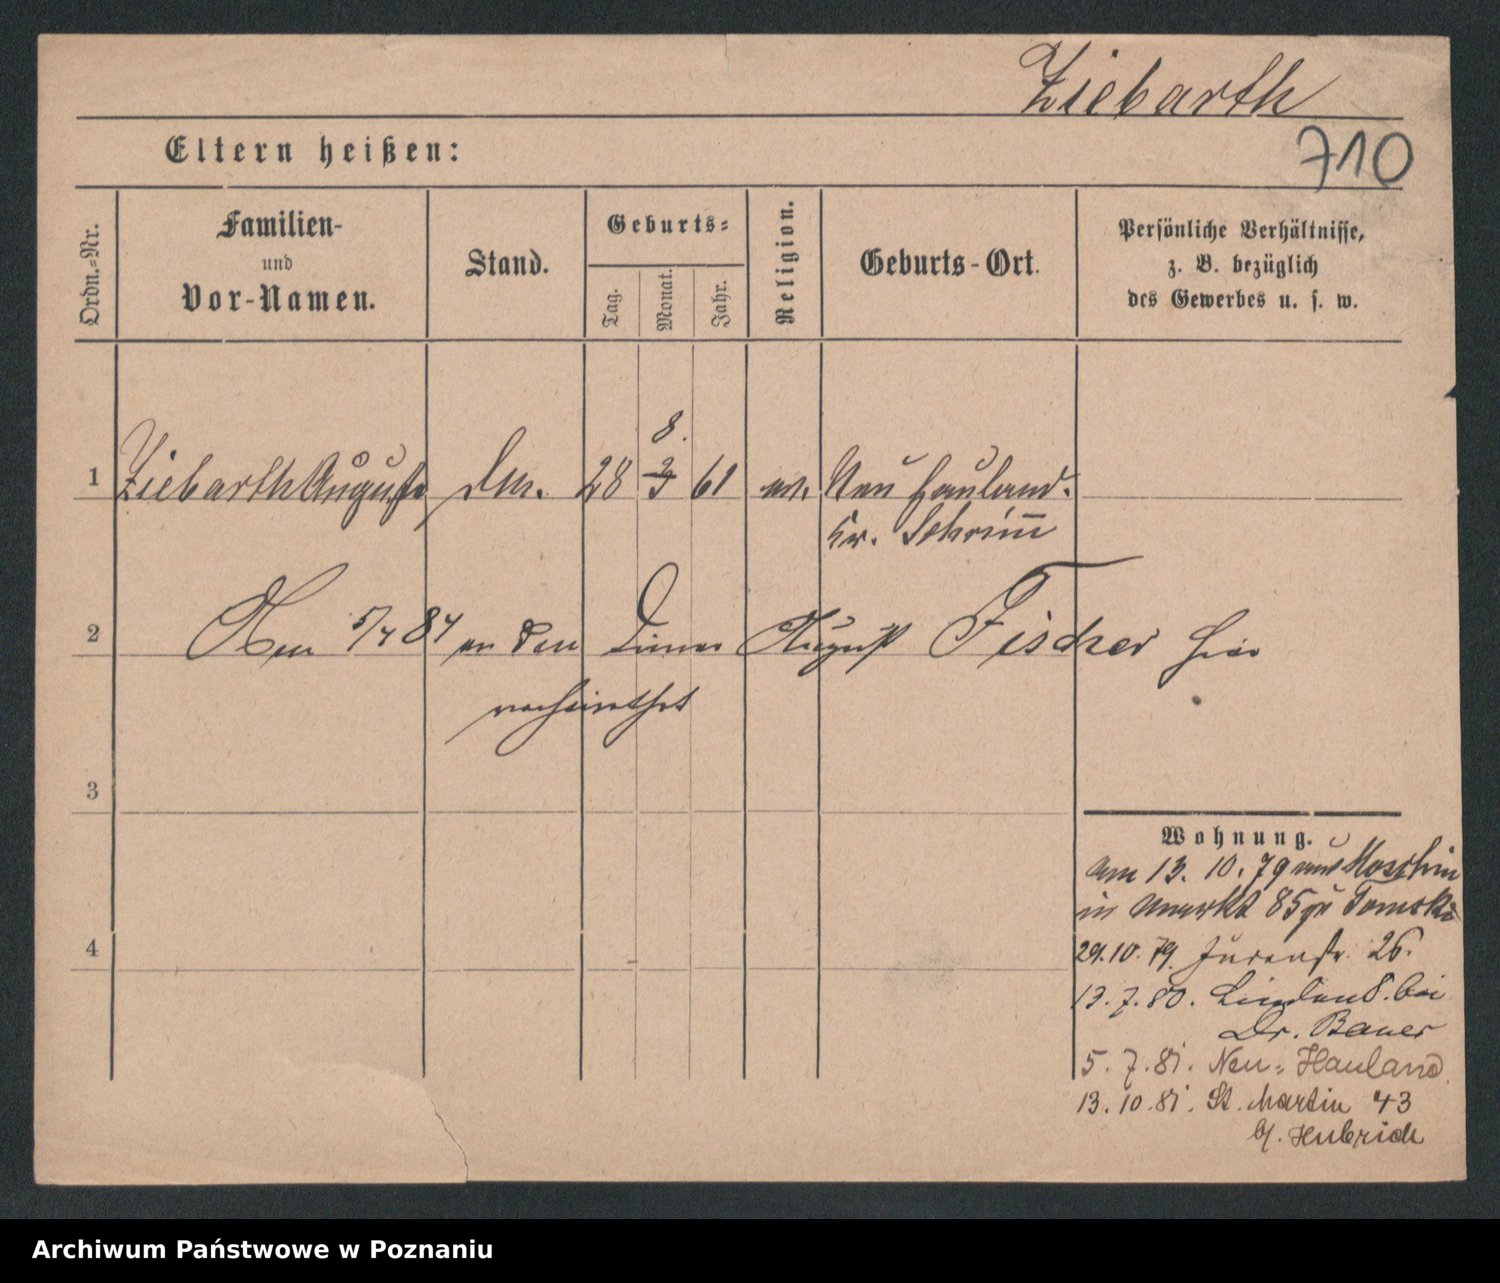 Ziebarth
710
Eltern heißen:
Ordn.=Nr.
Familien-
und
Vor-Namen.
Stand.
Geburts=
Tag.
Monat.
Jahr.
Religion.
Geburts-Ort.
Persönliche Verhältnisse,
z. B. bezüglich
des Gewerbes u. s. w.
8.
1 Ziebarth Auguste Dm. 28 3 61 ev. Neu Hauland.
Kr. Schrim̅
2 Am 5/7 84 an den Diener August Fischer hier
verheirathet
3
Wohnung.
am 13. 10. 79 aus Moschin
in Amarkt 85 zu Tomski
4
29. 10. 79. Judenstr. 26.
13. 7. 80. Lindenst. bei
Dr. Bauer
5. 7. 81. Neu=Hauland.
13. 10. 81. St. Martin 43
b/. Hubrich
Archiwum Państwowe w Poznaniu